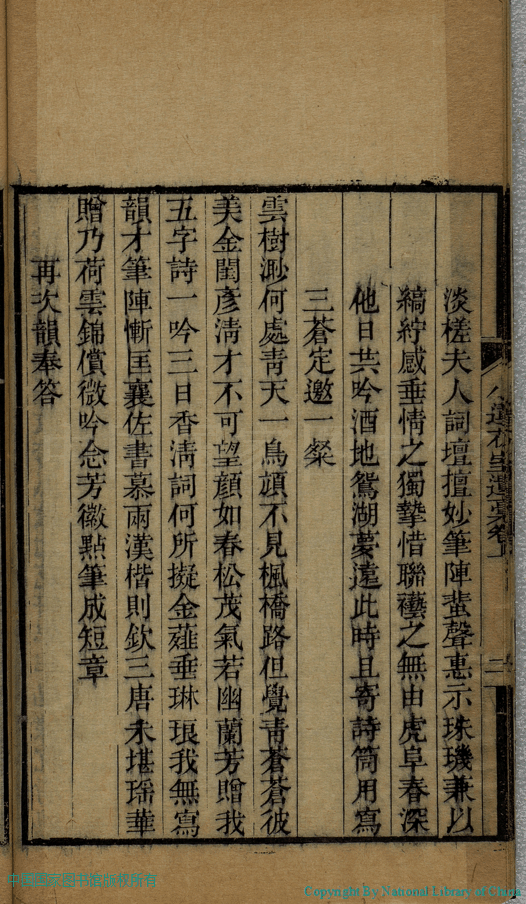 淡槎夫人詞壇擅妙筆陣蜚聲惠示珠璣兼以
縞紵感垂情之獨摯惜聯襼之無由虎阜春深
他日共吟酒地鴛湖夢遠此時且寄詩筒用寫
三蒼定邀一粲
雲樹渺何處青天一鳥頏不見楓橋路但覺青蒼蒼彼
美金閨彥淸才不可望顏如春松茂氣若幽蘭芳贈我
五字詩一吟三日香淸詞何所擬金薤垂琳琅我無寫
韻才筆陣慚匡襄佐書慕兩漢楷則欽三唐未堪瑶華
贈乃荷雲錦償微吟念芳徽點筆成短章
再次韻奉答
遺稾卷
二
Copyright By National Library of China